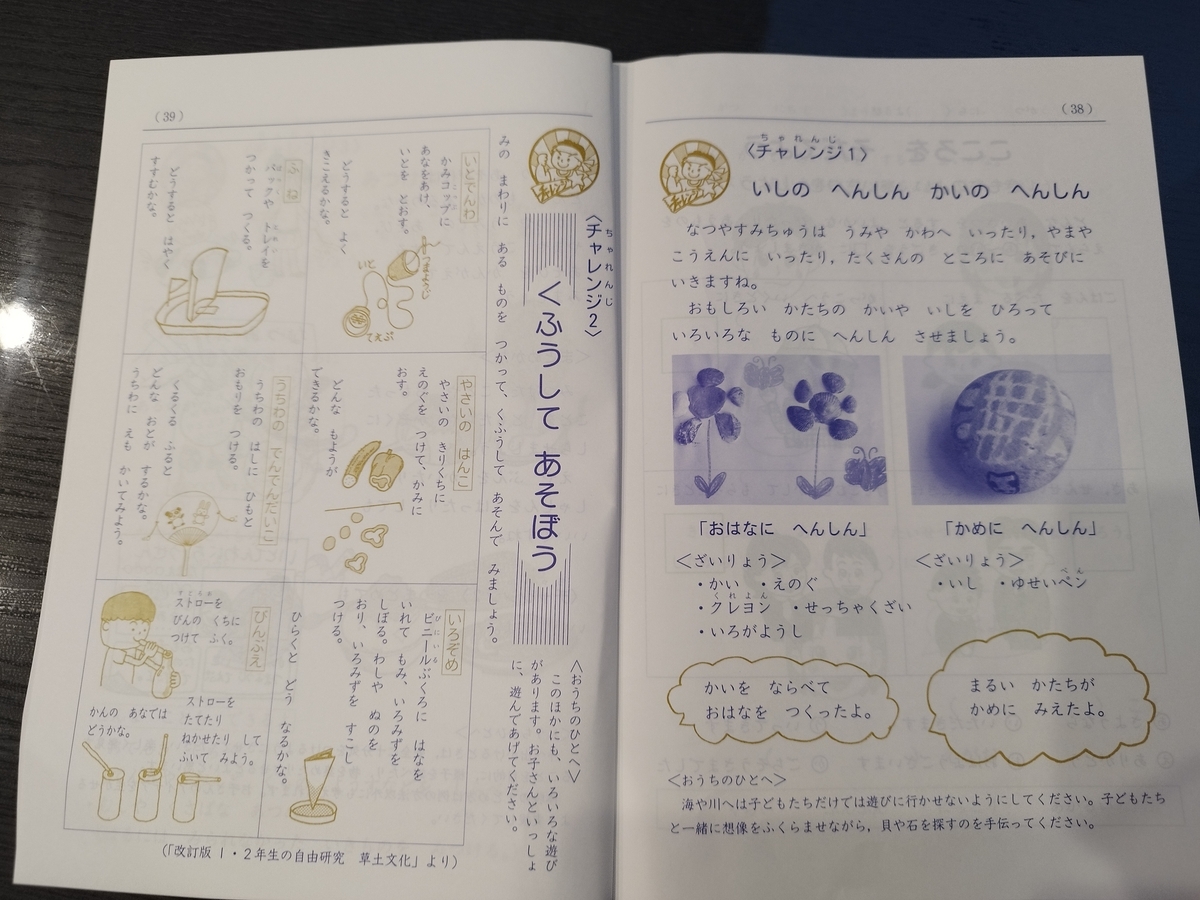 (38)
ちゃれんじ
〈チャレンジ1〉
いしの へんしん かいの へんしん
なつやすみちゅうは うみや かわへ いったり，やまや
こうえんに いったり，たくさんの ところに あそびに
いきますね。
おもしろい かたちの かいや いしを ひろって
いろいろな ものに へんしん させましょう。
「おはなに へんしん」
＜ざいりょう＞
・かい ・えのぐ
くれよん
・クレヨン ・せっちゃくざい
・いろがようし
かいを ならべて
おはなを つくったよ。
「かめに へんしん」
＜ざいりょう＞
ぺん
・いし ・ゆせいペン
まるい かたちが
かめに みえたよ。
＜おうちのひとへ＞
海や川へは子どもたちだけでは遊びに行かせないようにしてください。子どもた
と一緒に想像をふくらませながら，貝や石を探すのを手伝ってください。
(39)
ちゃれんじ
〈チャレンジ2〉
くふうして あそぼう
＜おうちのひとへ＞
このほかにも、いろいろな遊び
があります。お子さんといっしょ
に、遊んであげてください。
みの まわりに ある ものを つかって、くふうして あそんで みましょう。
いとでんわ
かみコップに
あなをあけ、
いとを とおす。
どうすると よく
きこえるかな。
つまようじ
いと
てえぷ
ふね
パックや トレイを
つかって つくる。
どうすると はやく
すすむかな。
やさいの はんこ
やさいの きりくちに
えのぐを つけて、かみに
おす。
どんな もようが
できるかな。
うちわの でんでんだいこ
うちわの はしに ひもと
おもりを つける。
くるくる ふると
どんな おとが するかな。
うちわに えも かいてみよう。
いろぞめ
びにいる
ビニールぶくろに はなを
いれて もみ、いろみずを
しぼる。わしや ぬのを
おり、いろみずを すこし
つける。
ひらくと どう なるかな。
びんぶえ
ストローを
びんの くちに
つけて ふく。
ストローを
たてたり
ねかせたり して
ふいて みよう。
かんの あなでは
どうかな。
（「改訂版 1・2年生の自由研究 草土文化」より）